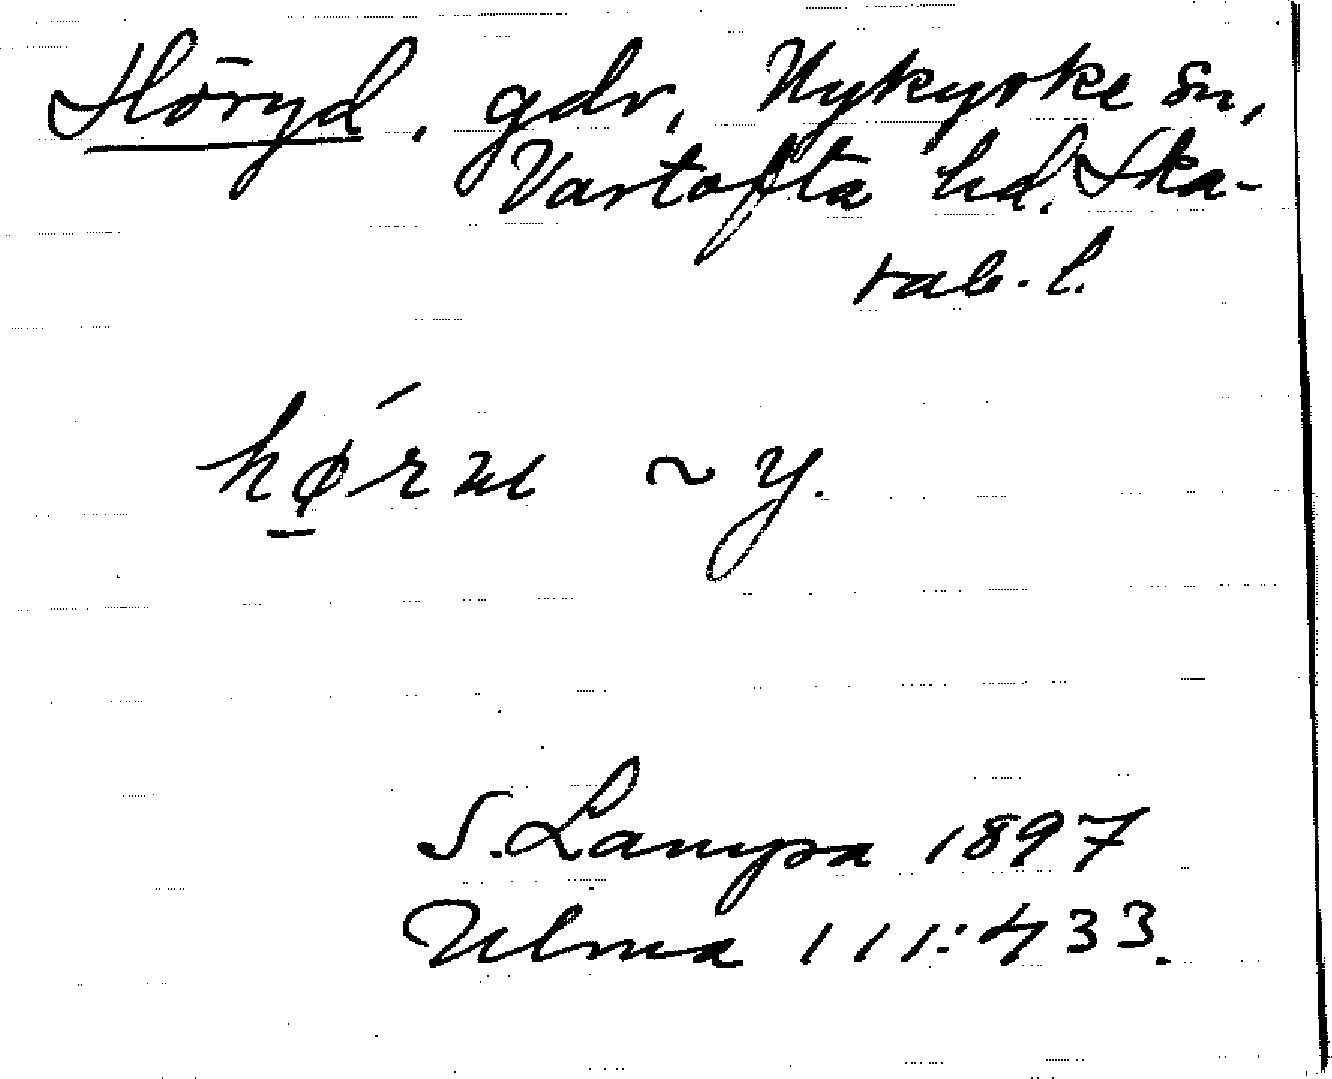 Höryd, gdr, Nykyrke sn,
Vartofta hd. Ska-
rab. l.
hǿ̱rɯ ~ y.
S. Lampa 1897
Ulma 111:433.